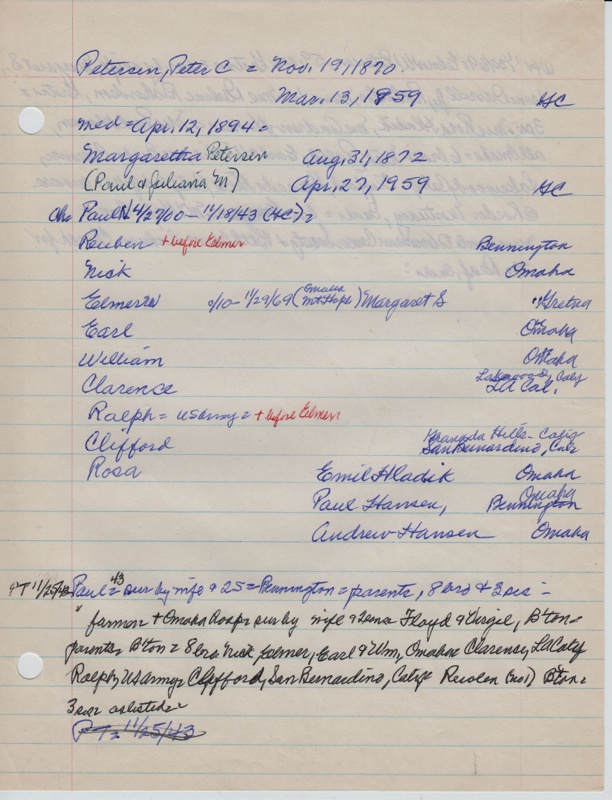 Petersen, Peter C = Nov. 19, 1870.
Mar. 13, 1959 HC
med = Apr. 12, 1894 =
Margaretha Petersen Aug. 31, 1872
(Paul & Juliana M) Apr. 27, 1959 HC
chs Paul N 4/27/00 - 11/18/43 (HC) =
Reuben + before Elmer Bennington
Nick Omaha
Elmer 0/10 - 11/29/69 (Omaha Mt Hope) Margaret S " Gretna
Earl Omaha
William Omaha
Clarence Lakewood, Calif LA Cal.
Ralph = US Army = + before Elmer
Clifford Hills - Calif San Bernardino, Calif
Rosa Emil Hladik Omaha
Paul Hansen, Omaha Bennington
Andrew Hansen Omaha
PT 11/25/43 Paul = 43 sur by wife & 2S = Bennington = parents, 8 bro & 3 sis -
" farmer + Omaha Hosp = sur by wife & sons Floyd & Virgil, B'ton =
parents B'ton = 8 bro Nick, Elmer, Earl & Wm, Omaha = Clarence, LA Calif
Ralph, US Army = Clifford, San Bernardino, Calif = B'ton =
3 sis as listed =
PT = 11/25/43